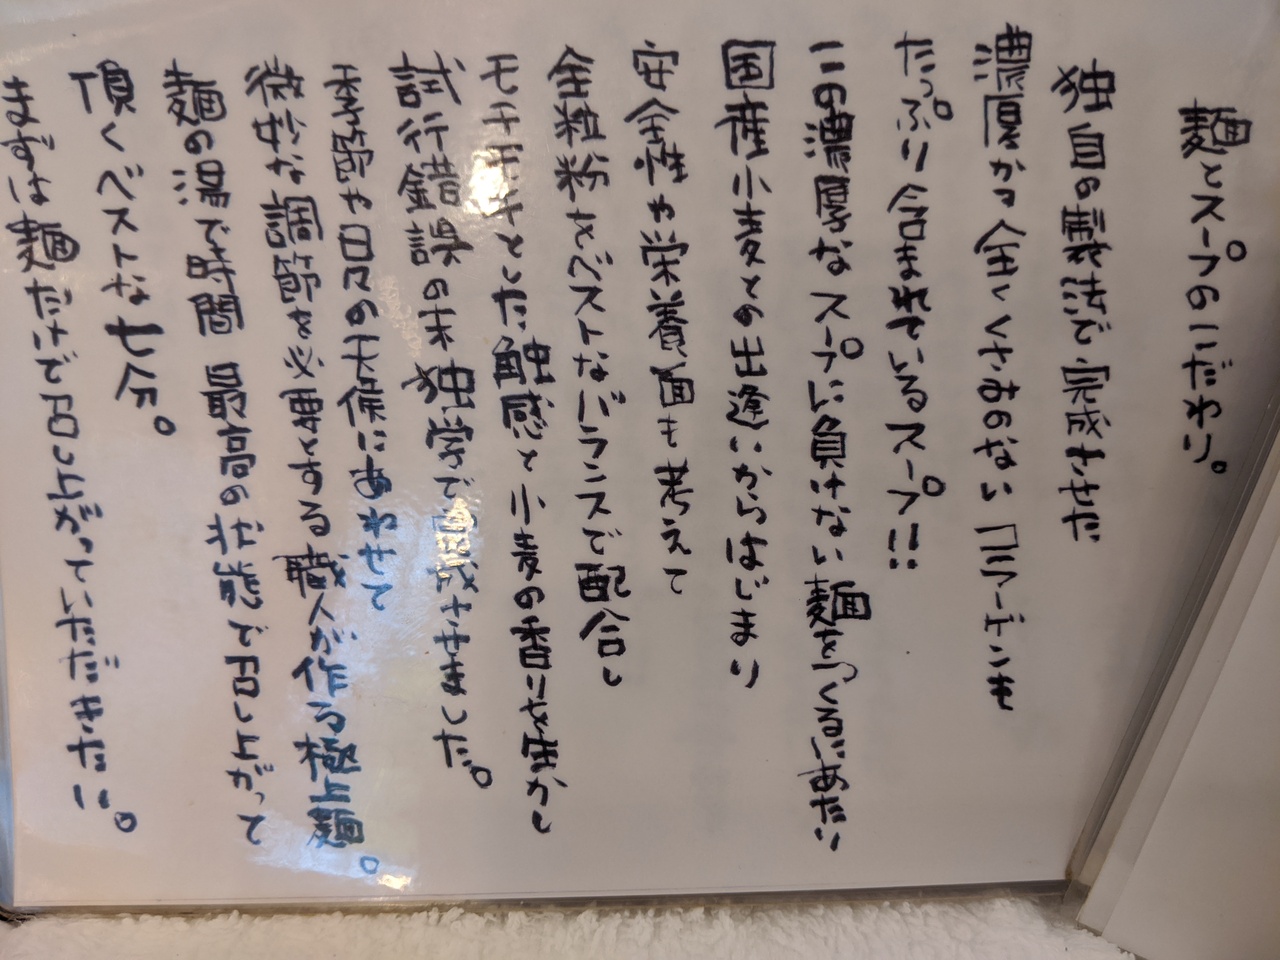 麺とスープのこだわり。
独自の製法で完成させた
濃厚かつ全くくさみのない コラーゲンも
たっぷり含まれているスープ!!
この濃厚な スープに負けない 麺をつくるにあたい
国産小麦との出逢いからはじまり
安全性や栄養面も考えて
全粒粉をベストなバランスで配合し
モチモチとした触感と小麦の香りを生かし
試行錯誤の末 独学で完成させました。
季節や日々の天候にあわせて
微妙な調節を必要とする 職人が作る極上麺。
麺の湯で時間 最高の状態で召し上がって
頂くベストな七分。
まずは麺だけで召し上がっていただきたい。